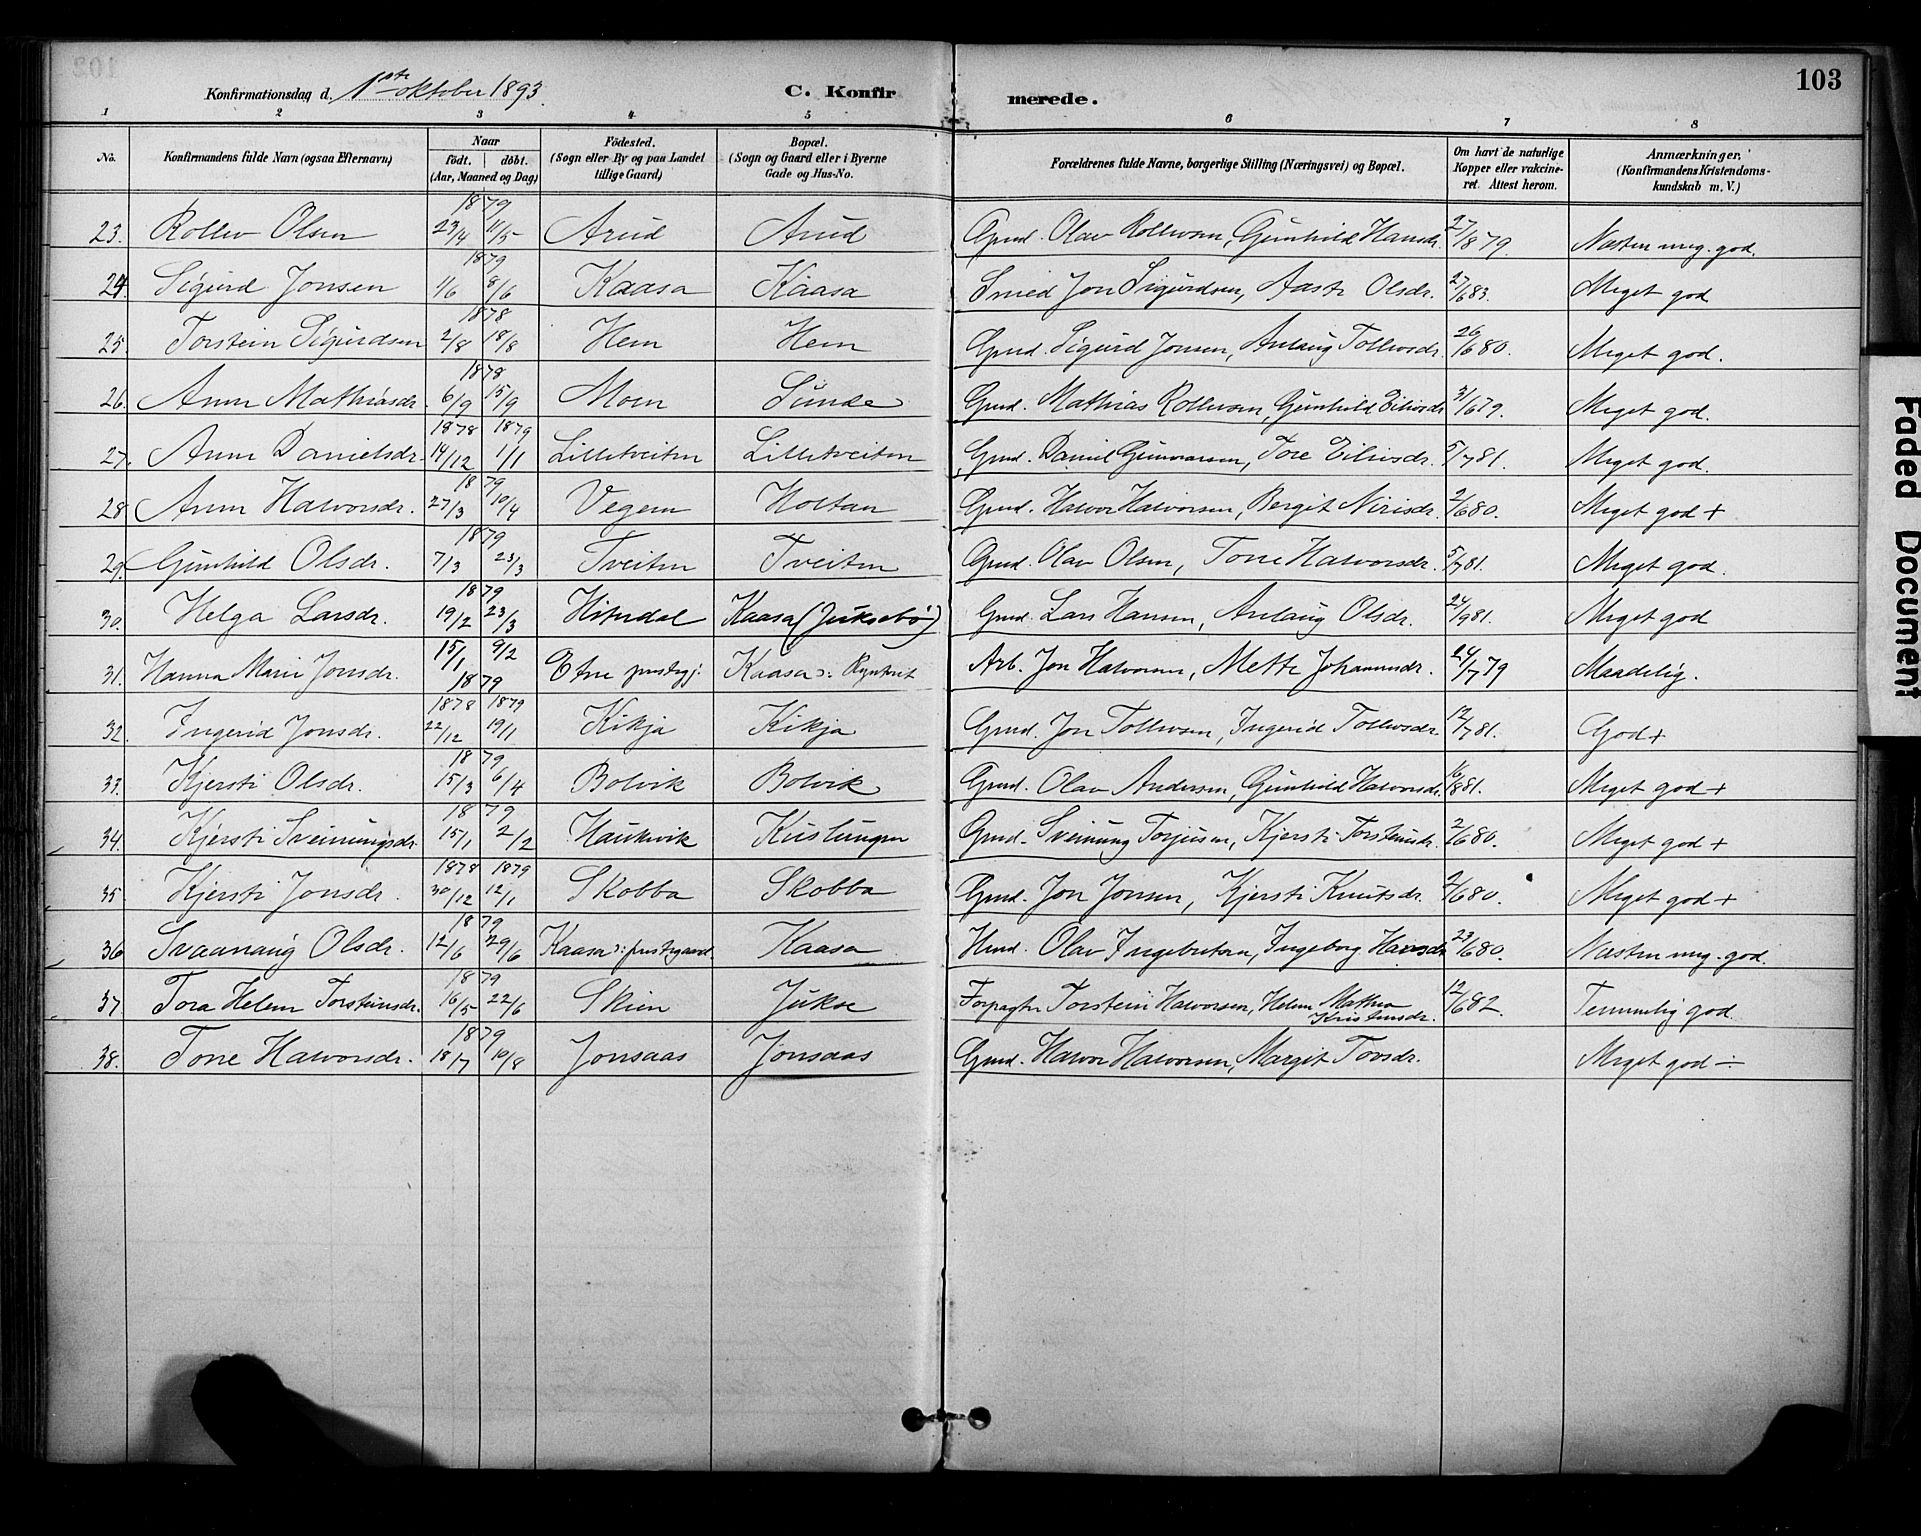 103
Konfirmationsdag d. 1ste oktober 1893.
C. Konfirmerede.
1 2 3 4 5 6 7 8
No. Konfirmandens fulde Navn (ogsaa Efternavn) Naar födt. döbt. (Aar, Maaned og Dag) Födested. (Sogn eller By og paa Landet tillige Gaard) Bopæl. (Sogn og Gaard eller i Byerne Gade og Hus-No. Forældrenes fulde Navne, borgerlige Stilling (Næringsvei) og Bopæl. Om havt de naturlige Kopper eller vakcineret. Attest herom. Anmærkninger. (Konfirmandens Kristendomskundskab m. V.)
23. Rollev Olsen 1879 23/4 11/5 Arud Arud Grmd. Olav Rollevsen, Gunhild Hansdr. 27/879. Næsten meg. god.
24. Sigurd Jonsen 1879 1/6 8/6 Kaasa Kaasa Smed Jon Sigurdsen, Aaste Olsdr. 27/683. Meget god
25. Torstein Sigurdsen 1878 2/8 18/8 Hem Hem Grmd. Sigurd Jonsen, Anlaug Tollevsdr. 26/680. Meget god.
26. Anne Mathiasdr. 1878 6/9 15/9 Moen Sunde Grmd. Mathias Rollevsen, Gunhild Eilivsdr. 3/679. Meget god.
27. Anne Danielsdr. 1878 1879 14/12 1/1 Lilletveiten Lilletveiten Grmd. Daniel Gunnarsen, Tore Eilivsdr. 5/781. Meget god.
28. Anne Halvorsdr. 1879 27/3 10/4 Vegem Holtan Grmd. Halvor Halvorsen, Bergit Nirisdr. 2/680. Meget god +
29. Gunhild Olsdr. 1879 7/3 23/3 Tveiten Tveiten Grmd. Olav Olsen, Tone Halvorsdr. 5/781. Meget god.
30. Helga Larsdr. 1879 19/2 23/3 Hiterdal Kaasa (Juksebø) Grmd. Lars Hansen, Anlaug Olsdr. 24/981. Meget god
31. Hanna Marie Jonsdr. 15/1 9/2 1879 Etne prestegj. Kaasa Arb. Jon Halvorsen, Mette Johannesdr. 24/779 Maadelig.
32. Ingerid Jonsdr. 1878 1879 22/12 19/1 Kikja Kikja Grmd. Jon Tollevsen, Ingerid Tollevsdr. 12/781. God +
33. Kjersti Olsdr. 1879 15/3 6/4 Bolvik Bolvik Grmd. Olav Andersen, Gunhild Halvorsdr. 16/881. Meget god +
34. Kjersti Sveinungsdr. 1879 15/1 2/2 Haukvik Kuslungen Grmd. Sveinung Torjusen, Kjersti Torsteinsdr. 2/680. Meget god +
35. Kjersti Jonsdr. 1878 1879 30/12 12/1 Skobba Skobba Grmd. Jon Jonsen, Kjersti Knutsdr. 2/680. Meget god +
36 Svaanaug Olsdr. 1879 12/6 29/6 Kaasa ɔ: prestegaard. Kaasa Hmd. Olav Ingebretsen, Ingeborg Hansdr. 23/680. Næsten meg. god.
37. Tora Helene Torsteinsdr. 1879 16/5 22/6 Skien Jukse Forpagter Torstein Halvorsen, Helene Mathea Kristensdr. 12/682. Temmelig god
38. Tone Halvorsdr. 1879 18/7 10/8 Jonsaas Jonsaas Grmd. Halvor Halvorsen, Margit Tovsdr. Meget god ÷
Faded Document